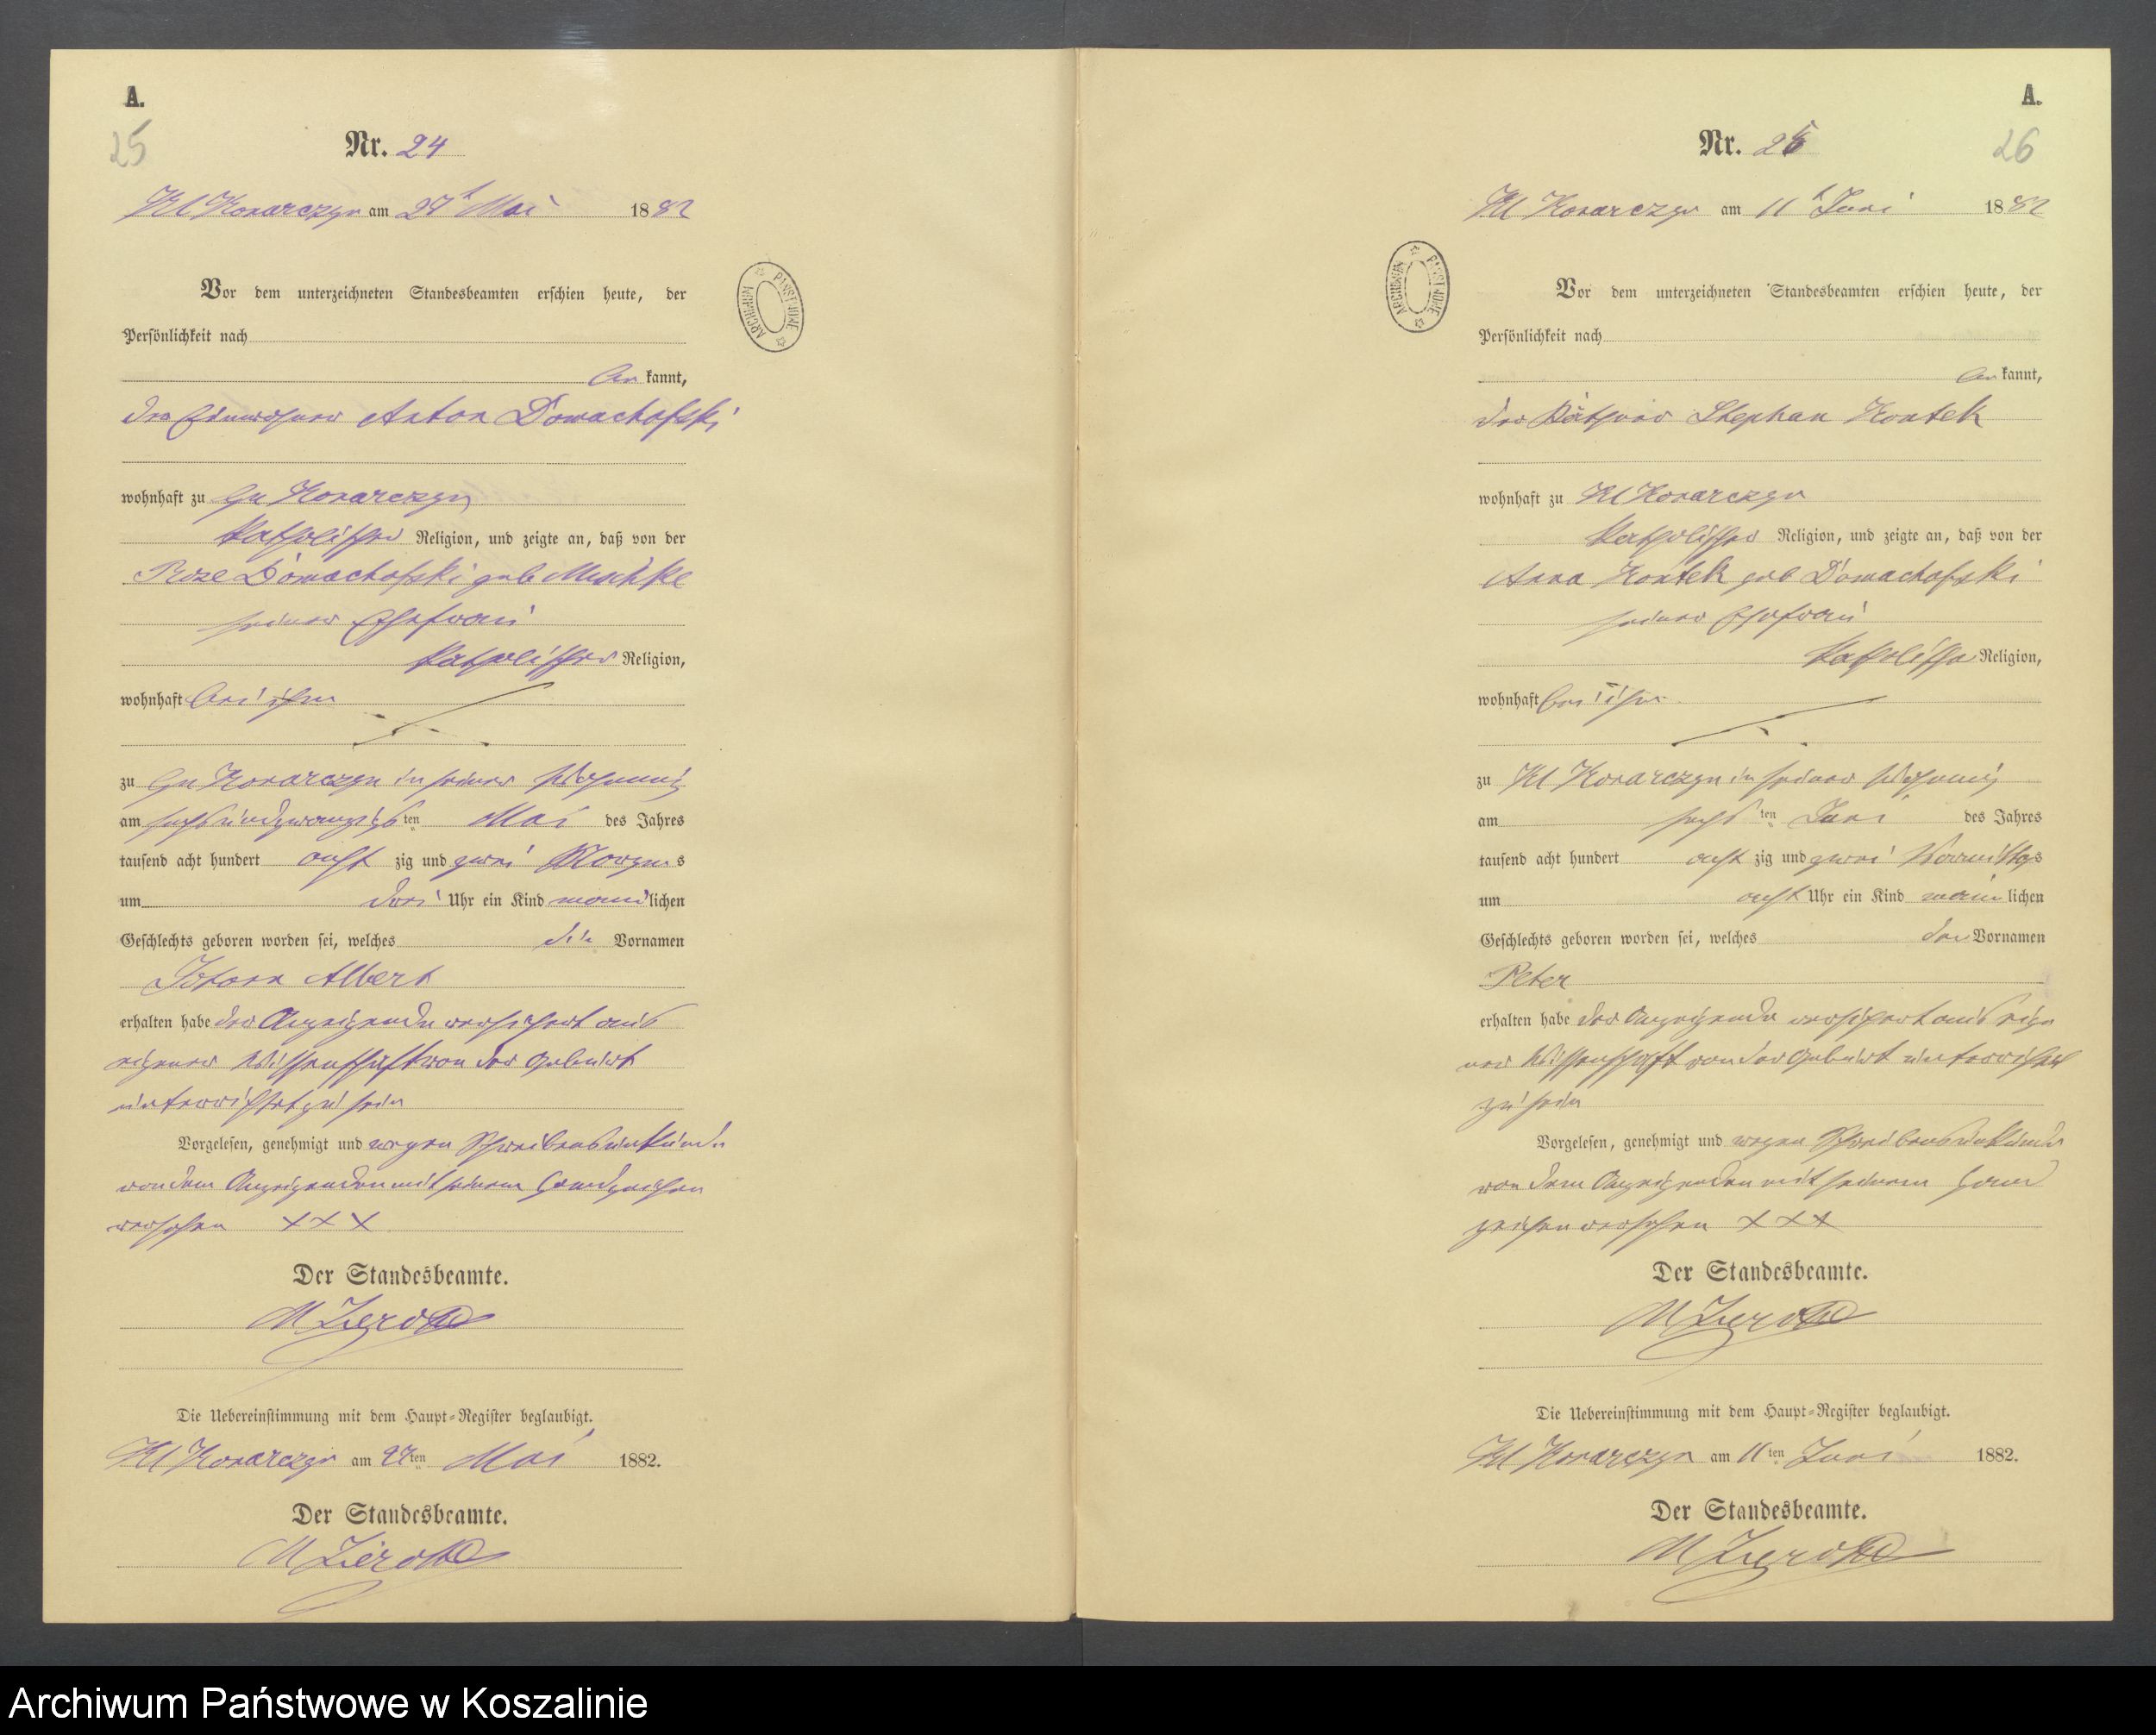 A.
25
Nr. 24
Kl Konarczyn am 27t Mai 1882
Vor dem unterzeichneten Standesbeamten erschien heute, der
Persönlichkeit nach
be kannt,
der Einwohner Anton Domachofski
wohnhaft zu Gr Konarczyn
katholischer Religion, und zeigte an, daß von der
Roze Domachofski geb Mischke
seiner Ehefrau
katholischer Religion,
wohnhaft bei ihm
zu Gr Konarczyn in seiner Wohnung
am sechsundzwanzigsten Mai des Jahres
tausend acht hundert acht zig und zwei Morgens
um drei Uhr ein Kind männlichen
Geschlechts geboren worden sei, welches die Vornamen
Johann Albert
erhalten habe der Anzeigende versichert aus
eigener Wissenschaft von der Geburt
unterrichtet zu sein
Vorgelesen, genehmigt und wegen Schreibensunkunde
von dem Anzeigenden mit seinem Handzeichen
versehen XXX
Der Standesbeamte.
Die Uebereinstimmung mit dem Haupt=Register beglaubigt.
Kl Konarczyn am 27ten Mai 1882.
Der Standesbeamte.
A.
26
Nr. 25
Kl Konarczyn am 11t Juni 1882
Vor dem unterzeichneten Standesbeamten erschien heute, der
Persönlichkeit nach
be kannt,
der Käthner Stephan Kontek
wohnhaft zu Kl Konarczyn
katholischer Religion, und zeigte an, daß von der
Anna Kontek geb Domachofski
seiner Ehefrau
katholische Religion,
wohnhaft bei ihm
zu Kl Konarczyn in seiner Wohnung
am sechsten Juni des Jahres
tausend acht hundert acht zig und zwei Vormittags
um acht Uhr ein Kind männlichen
Geschlechts geboren worden sei, welches den Vornamen
Peter
erhalten habe der Anzeigende versichert aus eige
ner Wissenschaft von der Geburt unterrichtet
zu sein
Vorgelesen, genehmigt und wegen Schreibensunkunde
von dem Anzeigenden mit seinem Hand
zeichen versehen XXX
Der Standesbeamte.
Die Uebereinstimmung mit dem Haupt=Register beglaubigt.
Kl Konarczyn am 11ten Juni 1882.
Der Standesbeamte.
ARCHIWUM PAŃSTWOWE
ARCHIWUM PAŃSTWOWE
Archiwum Państwowe w Koszalinie